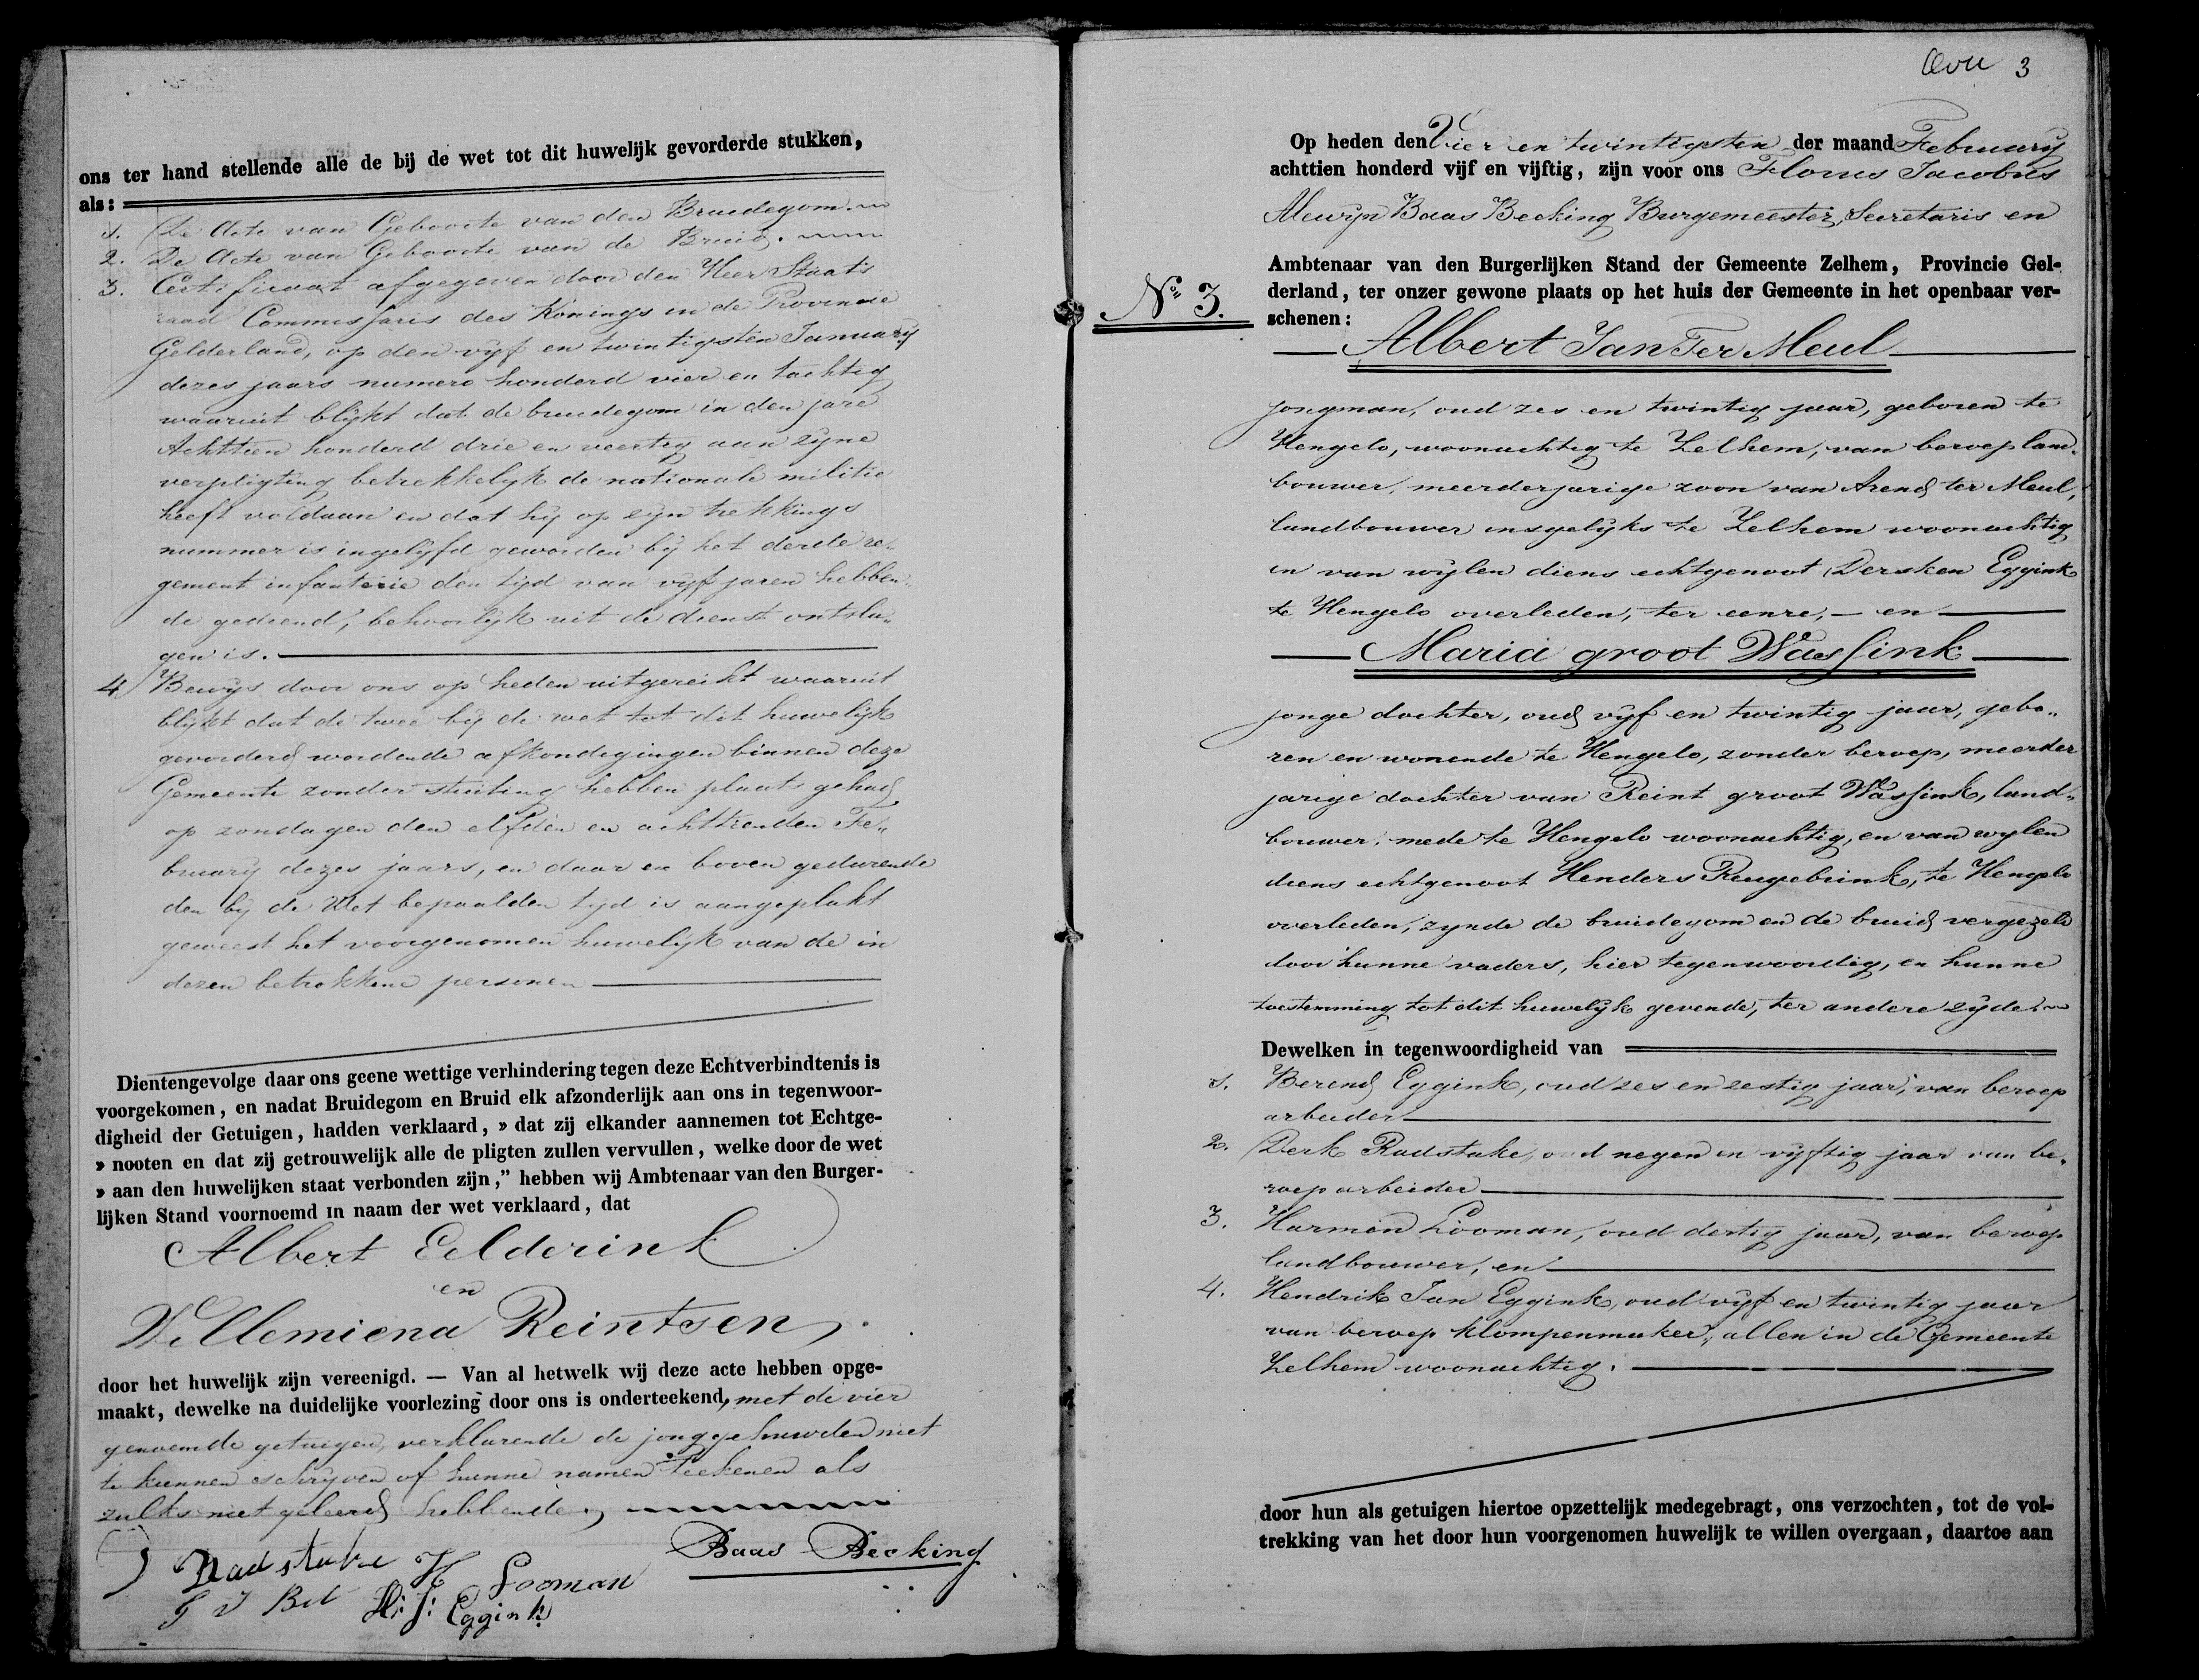 ons ter hand stellende alle de bij de wet tot dit huwelijk gevorderde stukken,
als:
1. De Acte van Geboorte van den Bruidegom.
2. De Acte van Geboorte van de Bruid.
3. Certificaat afgegeven door den Heer Staats
raad Commissaris des Konings in de Provincie
Gelderland, op den vyf en twintigsten January
dezes jaars numero honderd vier en tachtig
waaruit blykt dat de bruidegom in den jare
Achttien honderd drie en veertig aan zyne
verpligting betrekkelyk de nationale militie
heeft voldaan en dat hy op zyn trekkings
nummer is ingelyfd geworden by het derde re„
gement infanterie den tyd van vyf jaren hebben„
de gediend, behoorlyk uit de dienst ontsla„
gen is.
4. Bewys door ons op heden uitgereikt waaruit
blykt dat de twee by de wet tot dit huwelyk
gevorderd wordende afkondigingen binnen deze
Gemeente zonder stuiting hebben plaats gehad
op zondagen den elfden en achttienden Fe„
bruary dezes jaars, en daar en boven gedurende
den by de Wet bepaalden tyd is aangeplakt
geweest het voorgenomen huwelyk van de in
dezen betrokkene personen
Dientengevolge daar ons geene wettige verhindering tegen deze Echtverbindtenis is
voorgekomen, en nadat Bruidegom en Bruid elk afzonderlijk aan ons in tegenwoor-
digheid der Getuigen, hadden verklaard, » dat zij elkander aannemen tot Echtge-
» nooten en dat zij getrouwelijk alle de pligten zullen vervullen, welke door de wet
» aan den huwelijken staat verbonden zijn,” hebben wij Ambtenaar van den Burger-
lijken Stand voornoemd in naam der wet verklaard, dat
Albert Eelderink
en
Willemiena Reintsen
door het huwelijk zijn vereenigd. — Van al hetwelk wij deze acte hebben opge-
maakt, dewelke na duidelijke voorlezing door ons is onderteekend, met de vier
genoemde getuigen, verklarende de jonggehuwden niet
te kunnen schryven of hunne namen teekenen als
zulks niet geleerd hebbende.
D Radstake H Looman Baas Becking
G J Bet H: J: Eggink
3
Op heden den Vier en twintigsten der maand February
achttien honderd vijf en vijftig, zijn voor ons Florus Jacobus
Alewyn Baas Becking Burgemeester, Secretaris en
Ambtenaar van den Burgerlijken Stand der Gemeente Zelhem, Provincie Gel-
derland, ter onzer gewone plaats op het huis der Gemeente in het openbaar ver-
schenen:
No 3.
Albert Jan Ter Meul
jongman, oud zes en twintig jaar, geboren te
Hengelo, woonachtig te Zelhem, van beroep land„
bouwer, meerderjarige zoon van Arend ter Meul,
landbouwer insgelyks te Zelhem woonachtig
en van wylen diens echtgenoot Dersken Eggink
te Hengelo overleden, ter eenre, — en
Maria groot Wassink
jonge dochter, oud vyf en twintig jaar, gebo„
ren en wonende te Hengelo, zonder beroep, meerder
jarige dochter van Reint groot Wassink, land„
bouwer, mede te Hengelo woonachtig, en van wylen
diens echtgenoot Henders Reugebrink, te Hengelo
overleden, zynde de bruidegom en de bruid vergezeld
door hunne vaders, hier tegenwoordig, en hunne
toestemming tot dit huwelyk gevende, ter andere zyde.
Dewelken in tegenwoordigheid van
1. Berend Eggink, oud zes en zestig jaar, van beroep
arbeider
2. Derk Radstake, oud negen en vyftig jaar van be„
roep arbeider
3. Harmen Looman, oud dertig jaar, van beroep
landbouwer, en
4. Hendrik Jan Eggink, oud vyf en twintig jaar
van beroep klompenmaker, allen in de Gemeente
Zelhem woonachtig.
door hun als getuigen hiertoe opzettelijk medegebragt, ons verzochten, tot de vol-
trekking van het door hun voorgenomen huwelijk te willen overgaan, daartoe aan